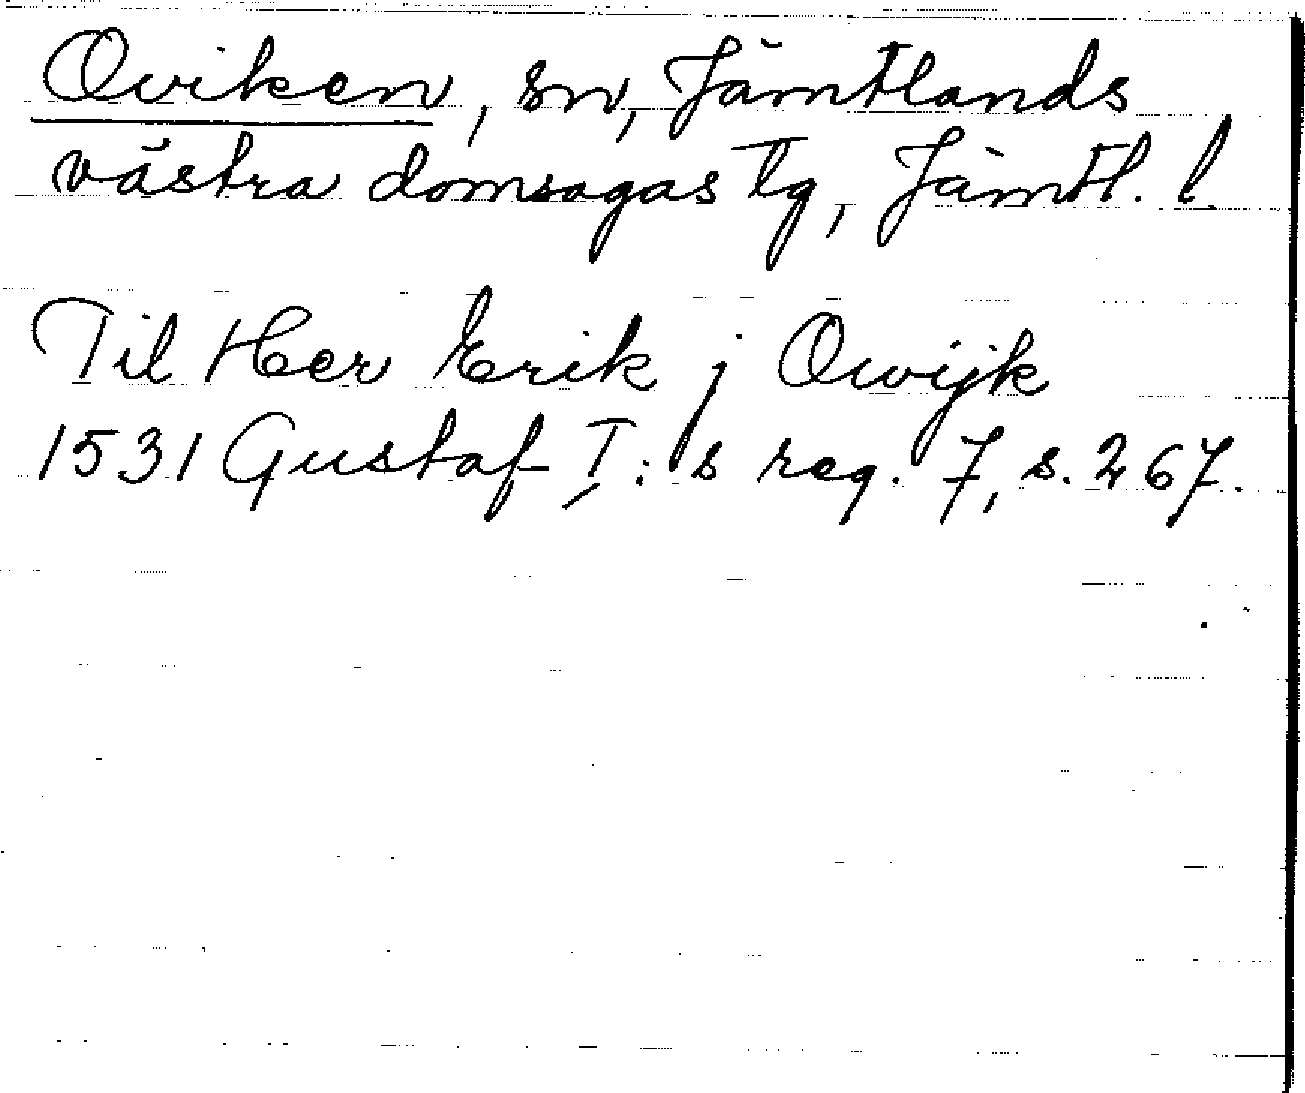 Oviken, sn, Jämtlands
västra domsagas tg, Jämtl. l.
Til Her Erik j Owijk
1531 Gustaf I:s reg. 7, s. 267.